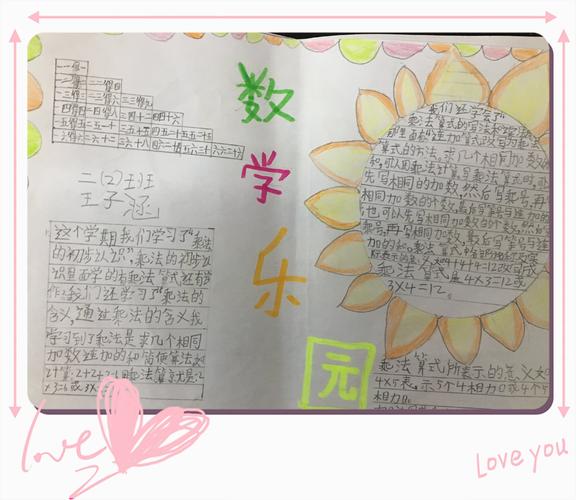 一一得一
一二得二 二二得四
一三得三 二三得六 三三得九
一四得四 二四得八 三四十二 四四十六
一五得五 二五一十 三五十五 四五二十 五五二十五
一六得六 二六十二 三六十八 四六二十四 五六三十 六六三十六
二(2)班
王子涵
这个学期我们学习了“乘法
的初步认识”,乘法的初步认
识里面学的有乘法算式还有
我们还学习了“乘法的
含义,通过乘法的含义我
学习到了乘法是求几个相同
加数连加的和的简便算法如
2+2+2=6用乘法算式就是:2
×3=6或3×
数
学
乐
园
我们还学会了
乘法算式的写法和
连加算式改写为乘
法算式的方法。求几个相同加数的
和,可以用乘法计算写乘法算式时,可以
先写相同的加数,然后写乘号,再写
相同加数的个数,最后写等号与连加的
和;也可以先写相同加数的个数,然后写
乘号,再写相同加数,最后写等号与连
加的和。乘法算式中
所表示的意义如4+4+4=12改写成
乘法算式是4×3=12或
3×4=12。
乘法算式所表示的意义如
4×5表示5个4相加或4个5
相加。
love
Love you